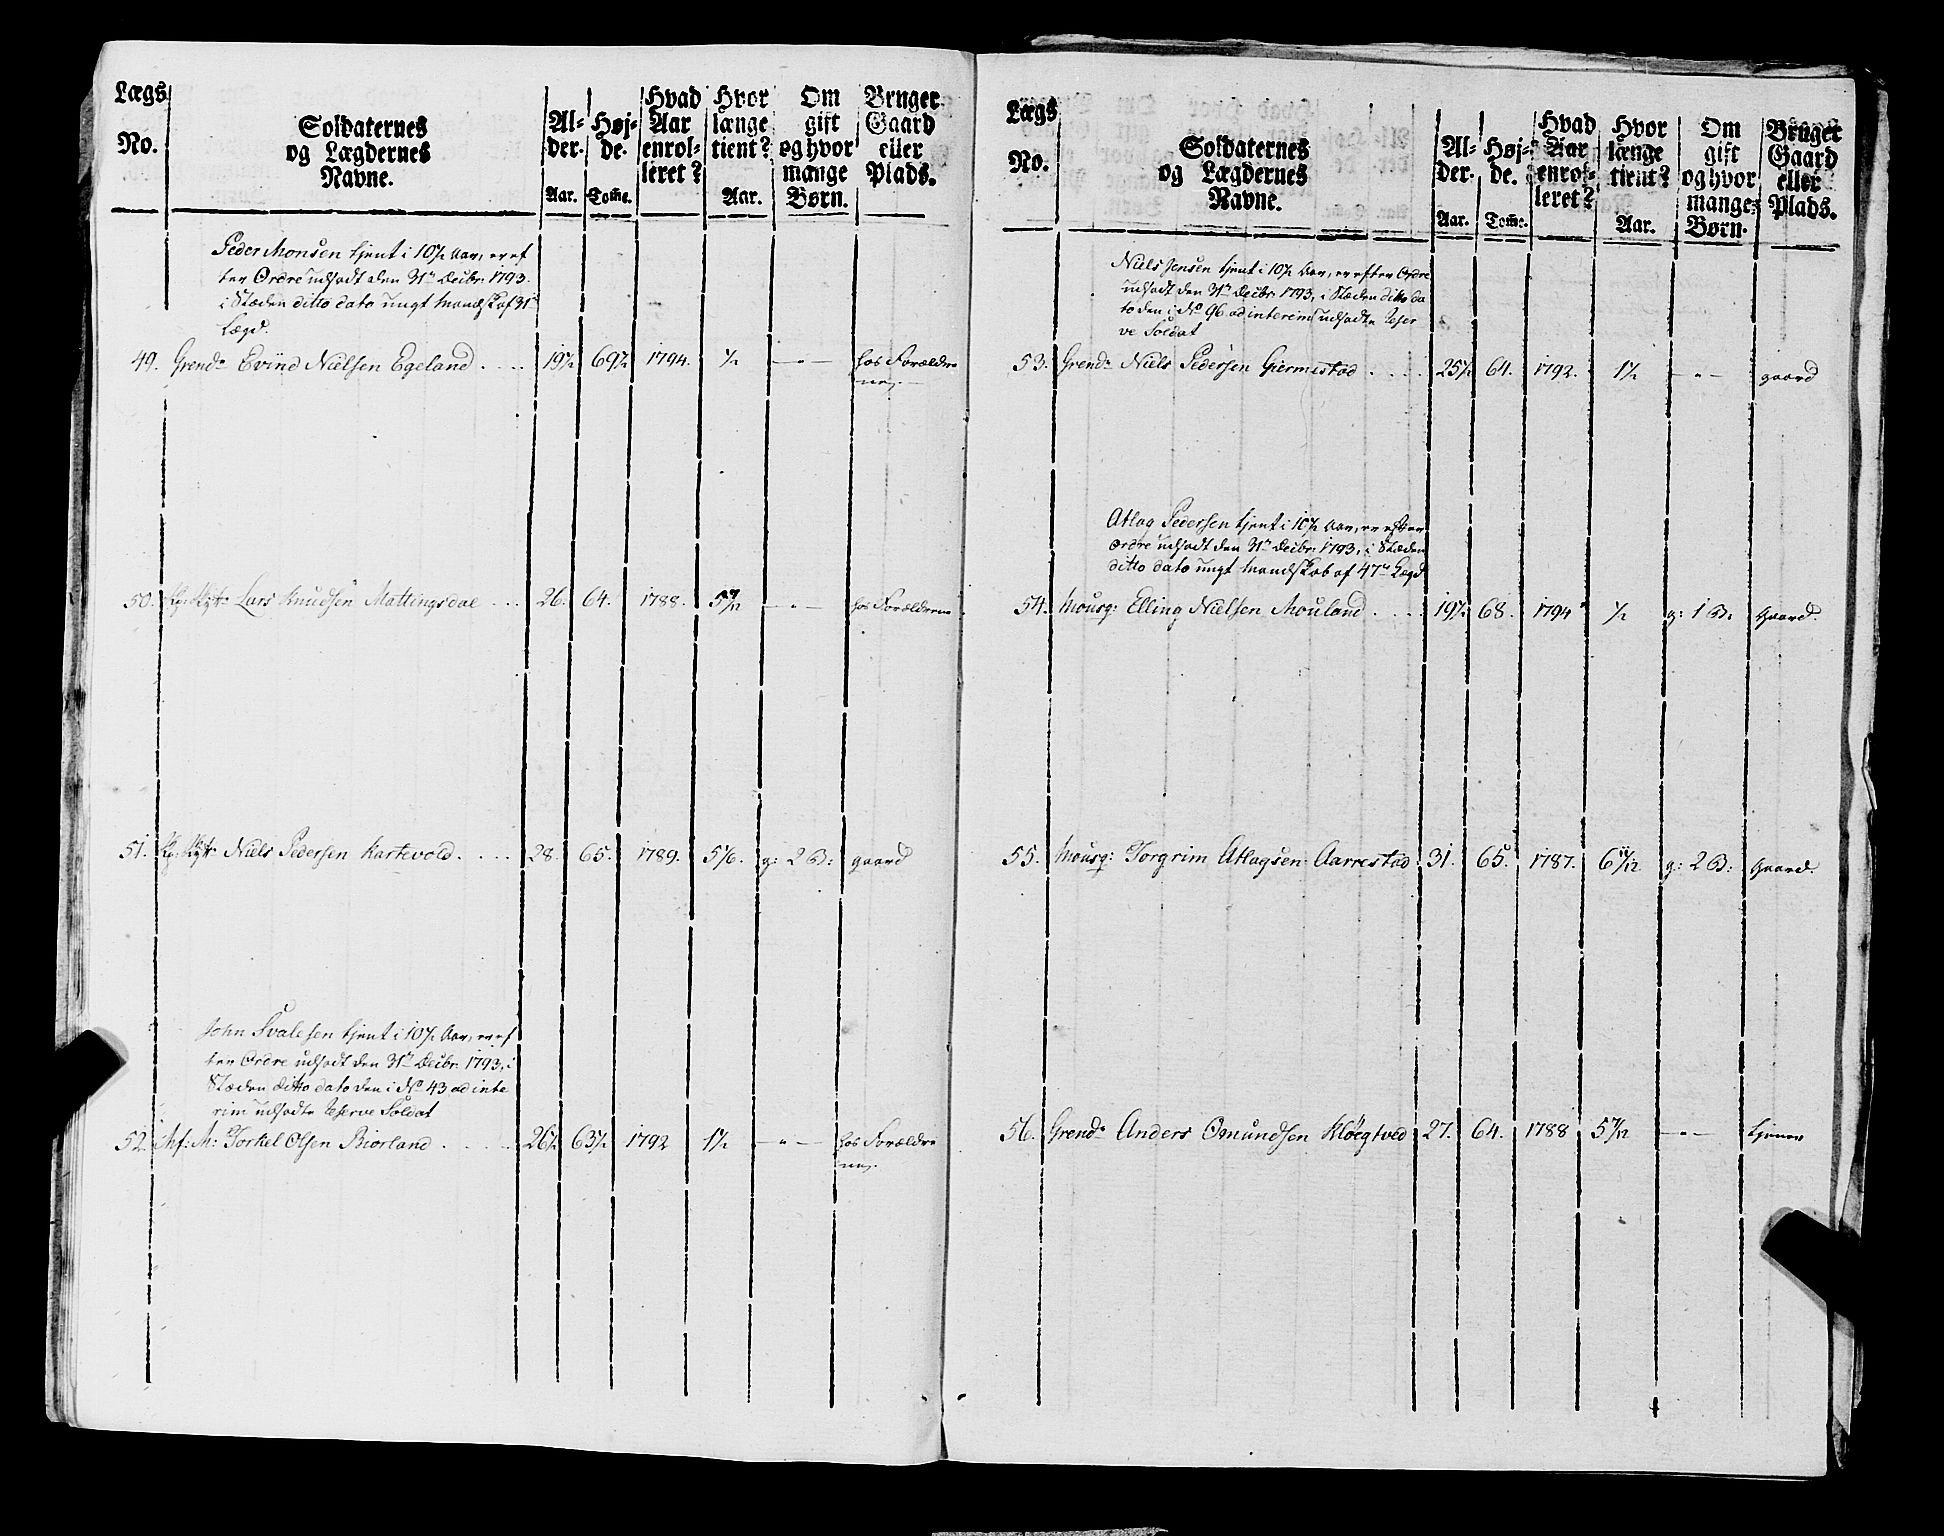 Lægs No. | Soldaternes og Lægdernes Navne. | Al-der. Aar. | Høj-de. Tom̃e. | Hvad Aar enrol-leret? | Hvor længe tient? Aar. | Om gift og hvor mange Børn. | Bruger Gaard eller Plads.
Peder Monsen tjent i 10½ Aar, er ef
ter Ordre udsadt den 31te Decbr: 1793.
i Stæden ditto dato ungt Mandskab af 31te
Lægd.
49. Grendr Evind Nielsen Egeland . . . . 19½ 69½ 1794. ½ — " — hos Forældre
ne.
50. Lars Knudsen Mattingsdal . . . 26. 64. 1788. 5 — " — hos Forældrene
51. Niels Pedersen Kartevold . . . . 28. 65. 1789. 5 g: 2 B: gaard
John Svalesen tjent i 10½ Aar, er ef
ter Ordre udsadt den 31te Decbr: 1793, i
Stæden ditto dato den i No 43 ad inte
rim udsadte Reserve Soldat
52. Torkel Olsen Biorland . . . . 26½ 63½ 1792 1½ — " — hos Forældre
ne.
Lægs No. | Soldaternes og Lægdernes Navne. | Al-der. Aar. | Høj-de. Tom̃e. | Hvad Aar enrol-leret? | Hvor længe tient? Aar. | Om gift og hvor mange Børn. | Bruger Gaard eller Plads.
Niels Jensen tjent i 10½ Aar, er efter Ordre
udsadt den 31te Decbr: 1793, i Stæden ditto da
to den i No 96 ad interim udsadte Reser
ve Soldat
53. Grendr Niels Pedersen Giermestad . . . . 25½ 64. 1792. 1½ — " — gaard
Atlag Pedersen tjent i 10½ Aar, er efter
Ordre udsadt den 31te Decbr: 1793, i Stæden
ditto dato ungt Mandskab af 47de Lægd
54. Mousq: Elling Nielsen Mouland . . . . 19½ 68. 1794 ½ g: 1 B: Gaard.
55. Mousq: Torgrim Atlagsen Aarrestad 31. 65. 1787. 6 11/12 g: 2 B: Gaard.
56. Grendr Anders Omundsen Kløegtved 27. 64. 1788 5 — " — tjener